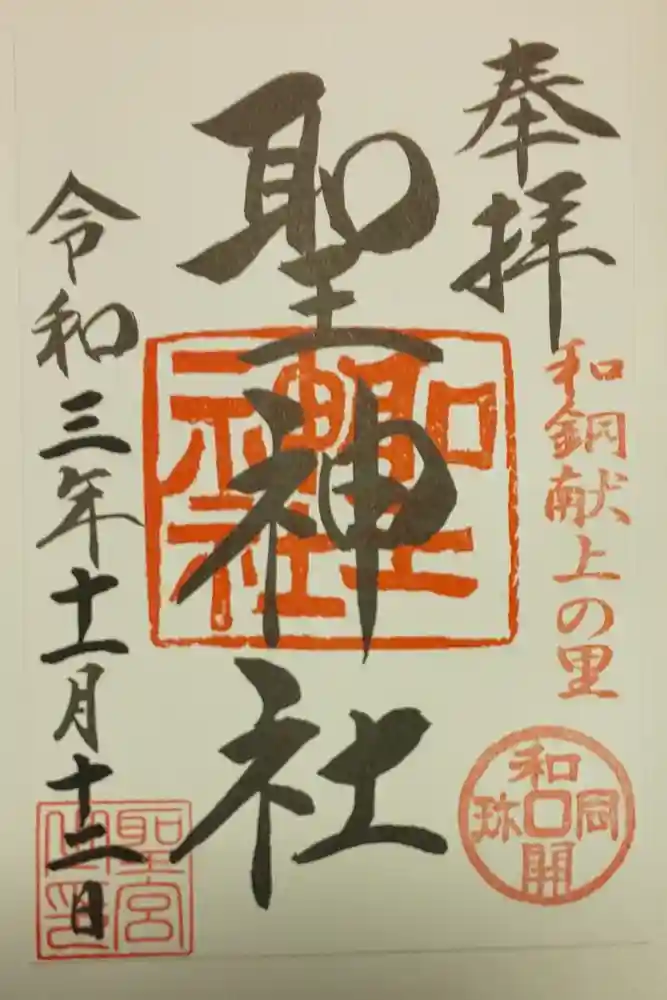 奉拝
和銅献上の里
和同開珎
聖神社
聖神社
令和三年十一月十二日
聖宮
之印